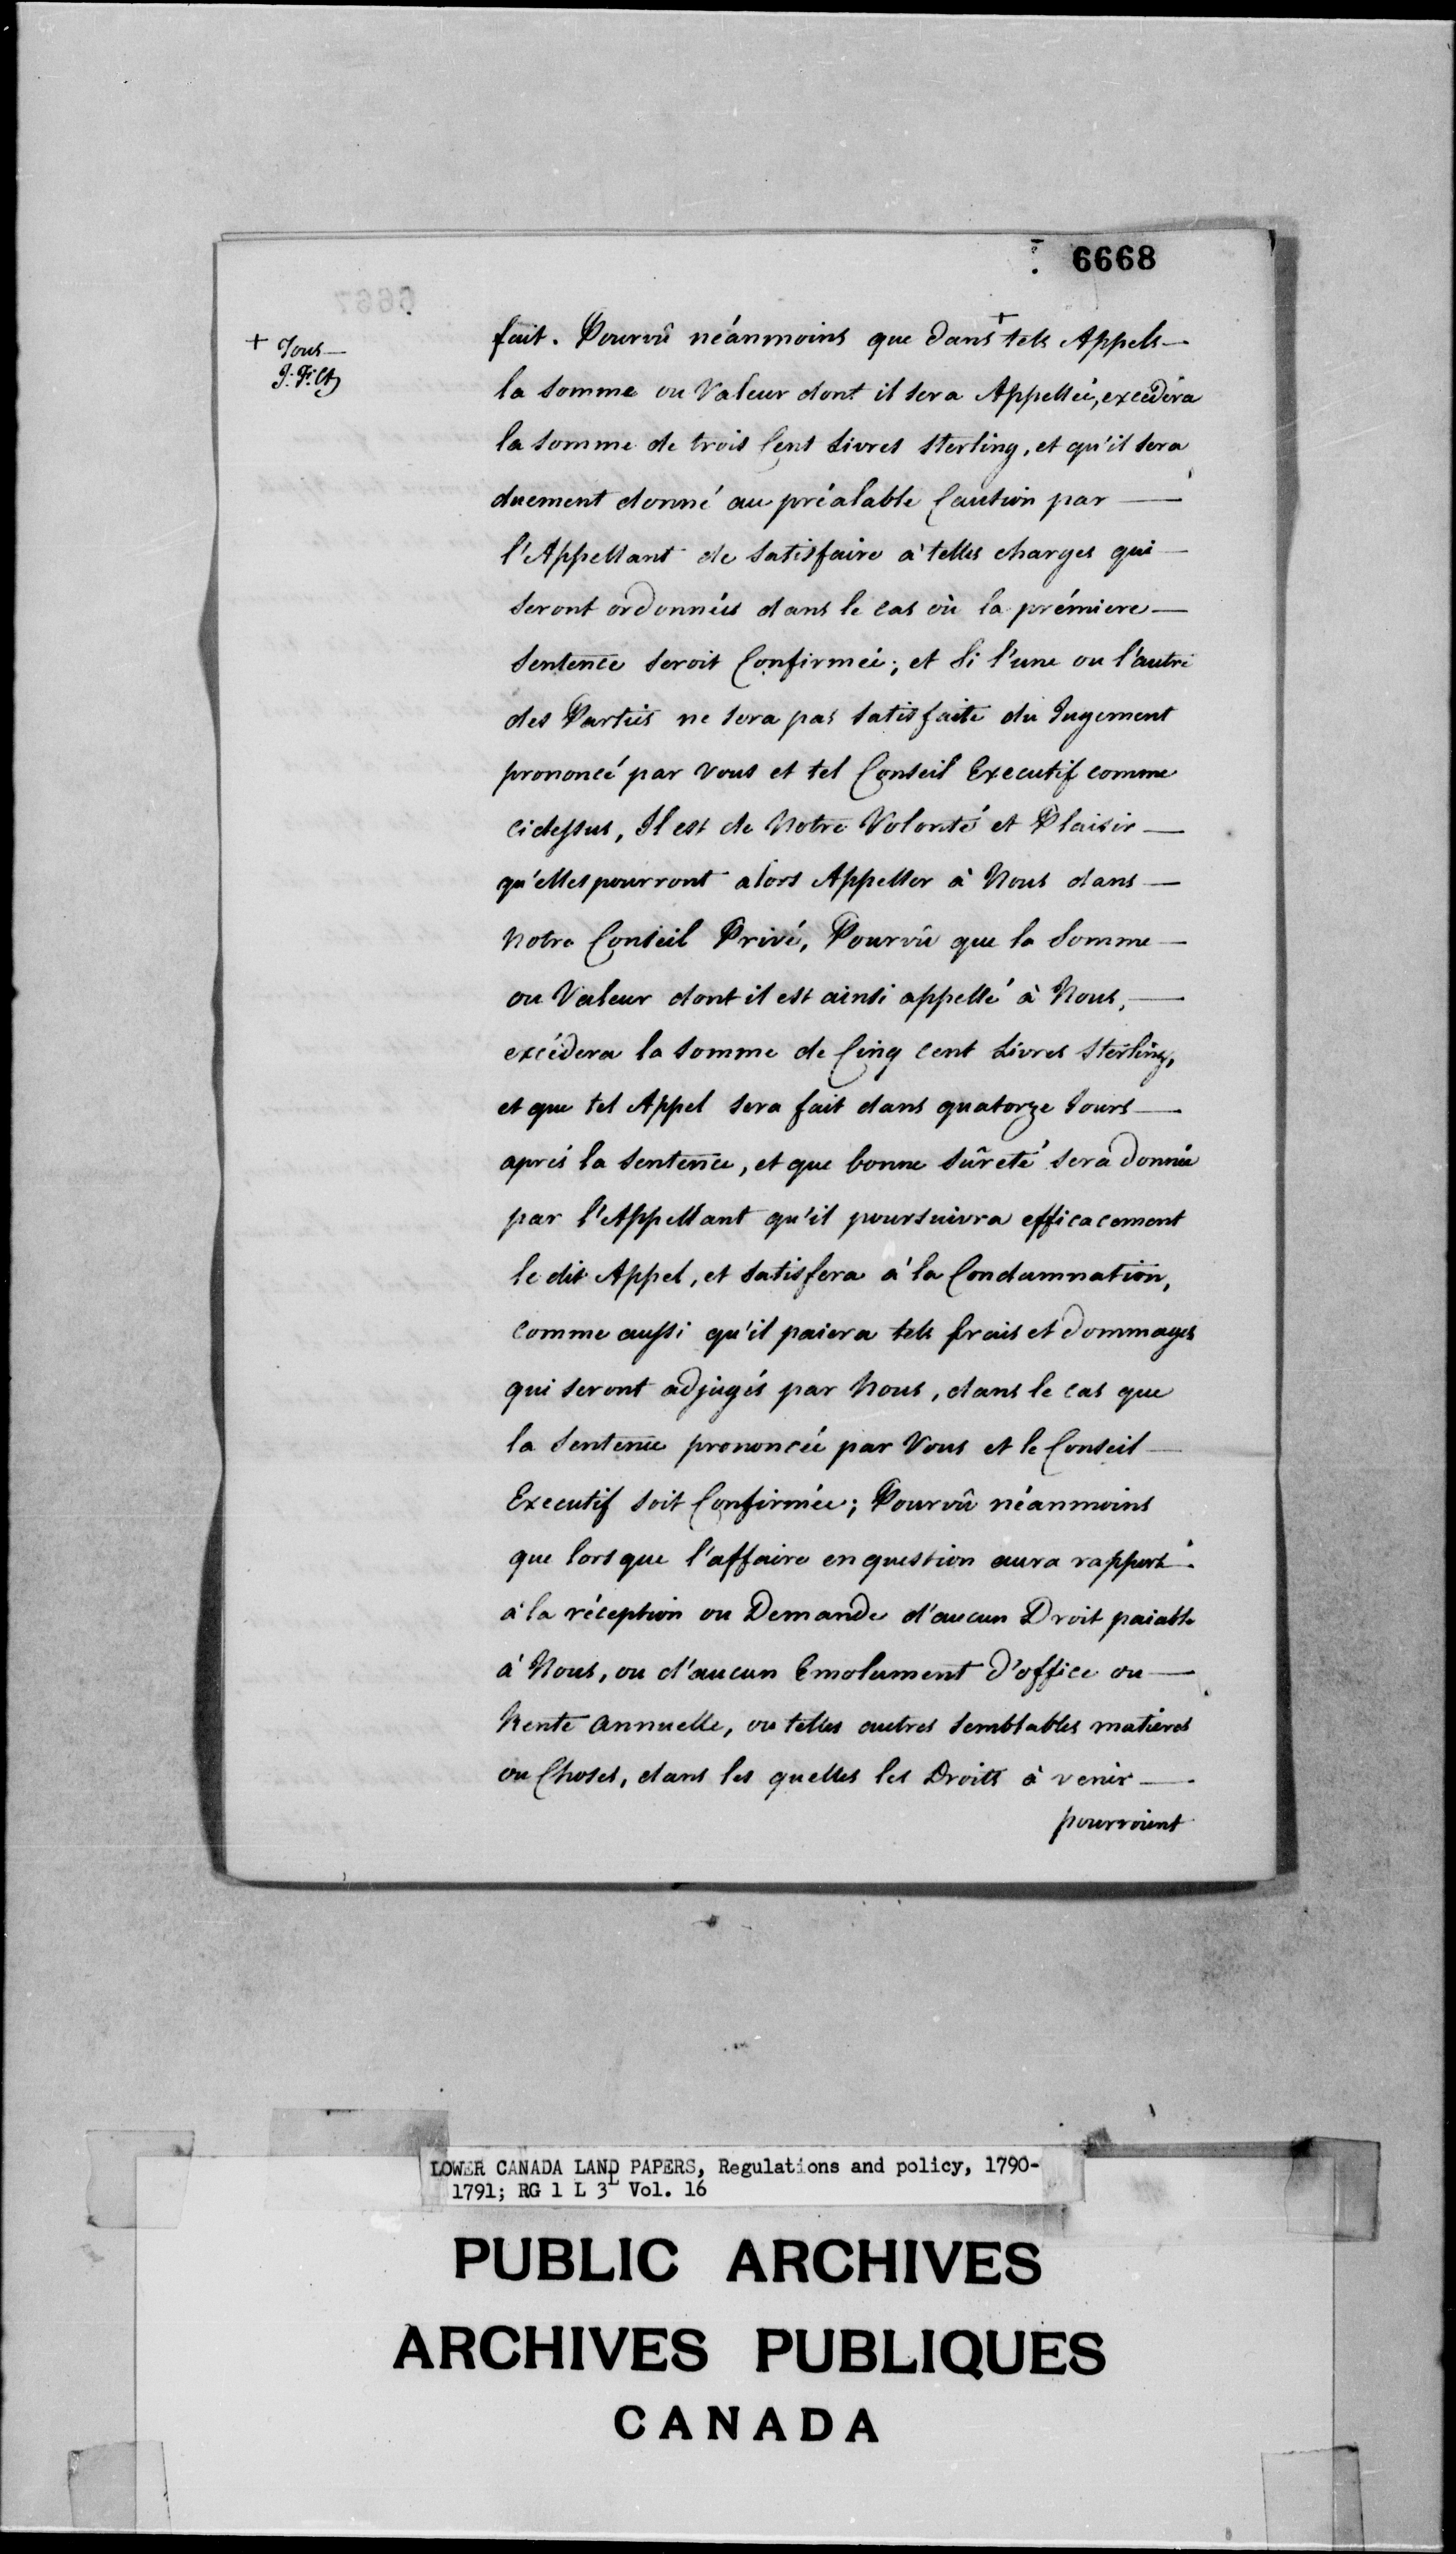 6668
+ Tous —
fait. Pourvû néanmoins que dans + tels Appels —
la somme ou Valeur dont il sera Appellée, excédera
la somme de trois Cent Livres sterling, et qu'il sera
duement donné au préalable Caution par —
l'Appellant de satisfaire à telles charges qui —
seront ordonnées dans le cas où la prémiere —
Sentence seroit Confirmée; et si l'une ou l'autre
des Parties ne sera pas satisfaite du Jugement
prononcé par vous et tel Conseil Executif comme
cidessus, Il est de Notre Volonté et Plaisir —
qu'elles pourront alors Appeller à Nous dans —
Notre Conseil Privé, Pourvû que la Somme —
ou Valeur dont il est ainsi appellé à Nous, —
excédera la somme de Cinq cent Livres Sterling,
et que tel Appel sera fait dans quatorze Jours —
aprés la Sentence, et que bonne sûreté sera donnée
par l'Appellant qu'il poursuivra efficacement
le dit Appel, et satisfera à la Condamnation,
comme aussi qu'il paiera tels frais et dommages
qui seront adjugés par Nous, dans le cas que
la Sentence prononcée par Vous et le Conseil —
Executif soit Confirmée; Pourvû néanmoins
que lorsque l'affaire en question aura rapport
à la réception ou Demande d'aucun Droit paiable
à Nous, ou d'aucun Emolument d'office ou —
Rente annuelle, ou telles autres semblables matières
ou Choses, dans les quelles les Droits à venir —
pourroient
LOWER CANADA LAND PAPERS, Regulations and policy, 1790-
1791; RG 1 L 3L Vol. 16
PUBLIC ARCHIVES
ARCHIVES PUBLIQUES
CANADA